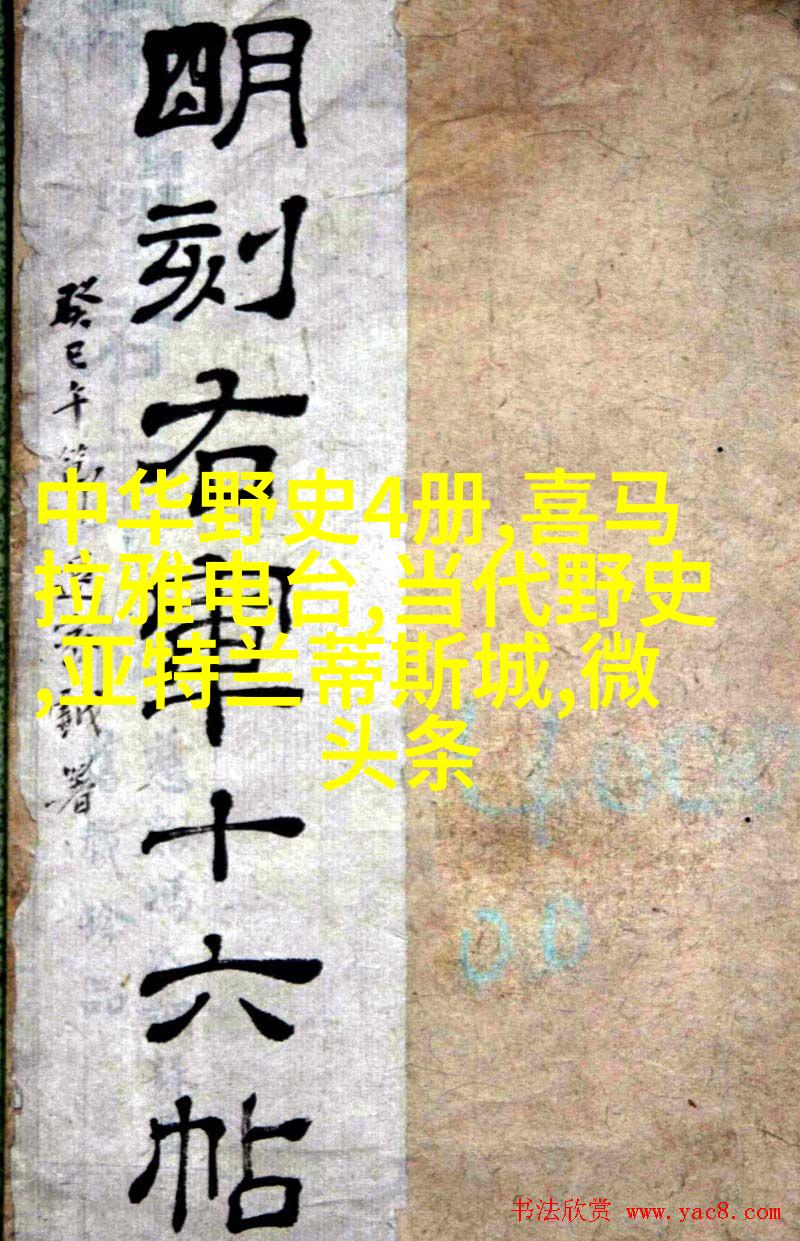 明刻右军十六帖
癸巳年
署
中华野史4册,喜马
拉雅电台,当代野史
,亚特兰蒂斯城,微
头条
00
书法欣赏 www.yac8.com